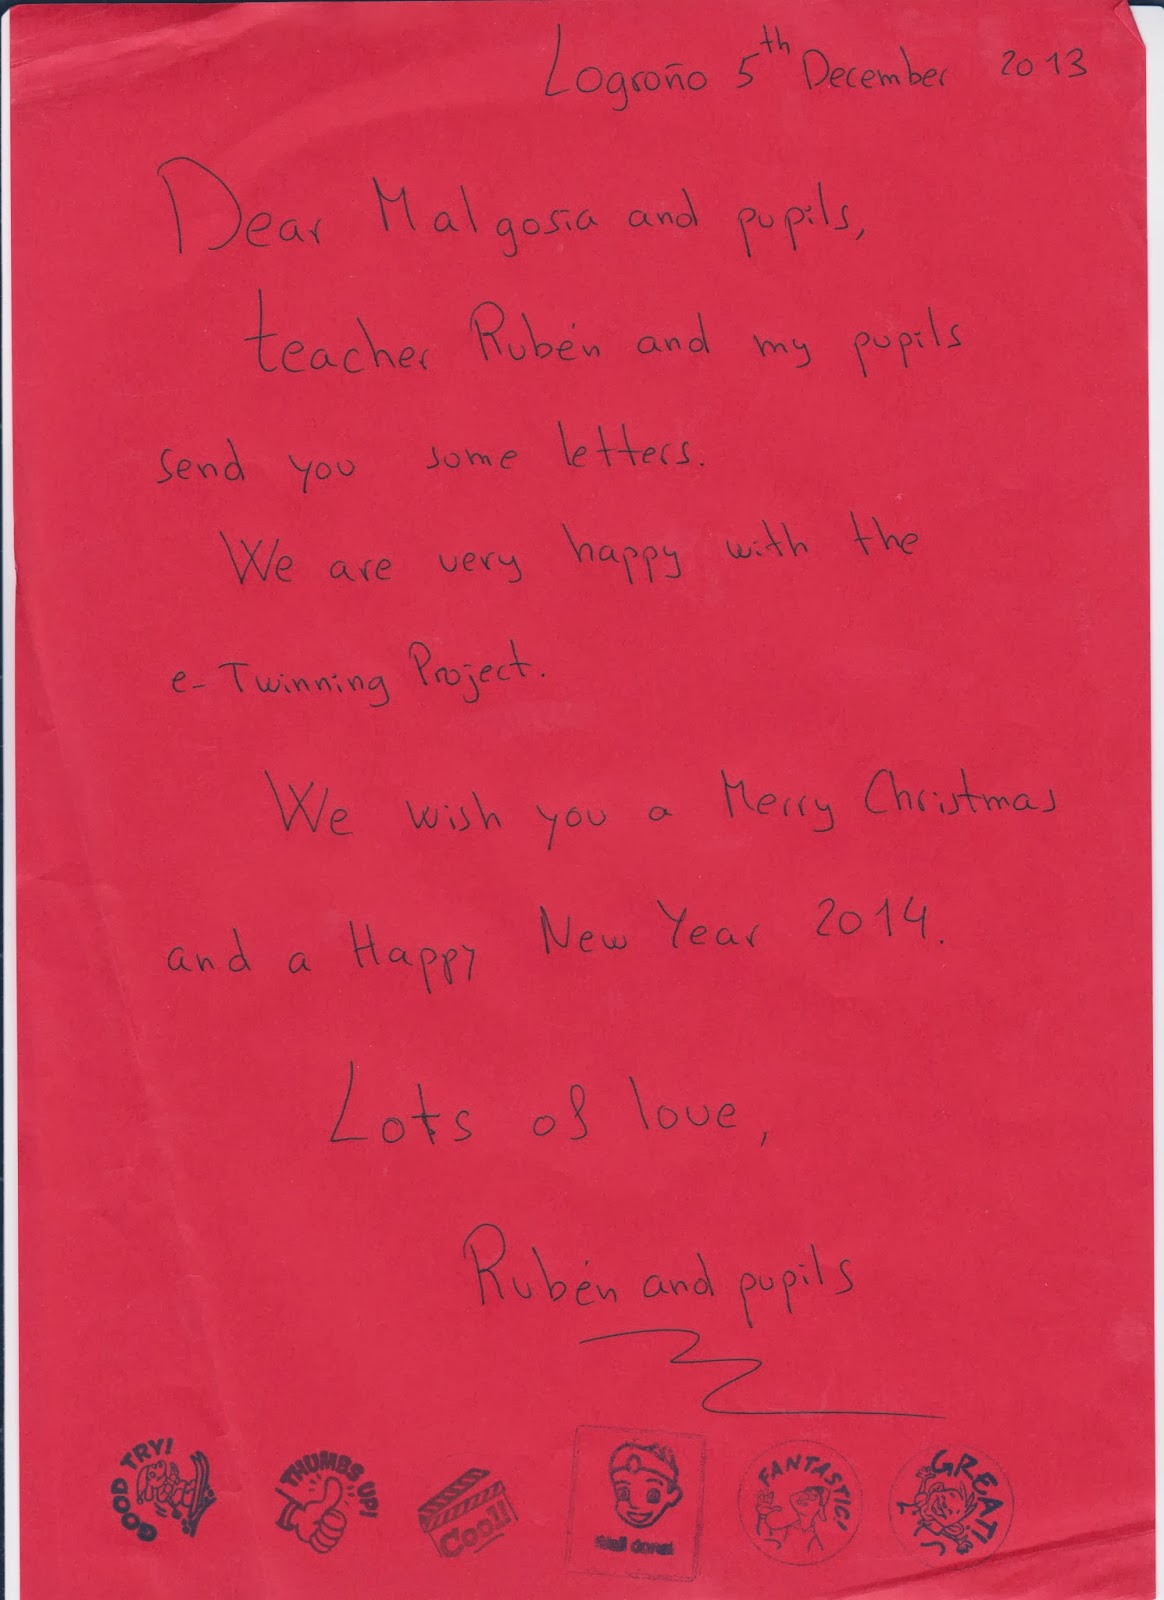 Logroño 5th December 2013
Dear Malgosia and pupils,
teacher Rubén and my pupils
send you some letters.
We are very happy with the
e-Twinning Project.
We wish you a Merry Christmas
and a Happy New Year 2014.
Lots of love,
Rubén and pupils
GOOD TRY!
THUMBS UP!
Cool!
Well done!
FANTASTIC!
GREAT!